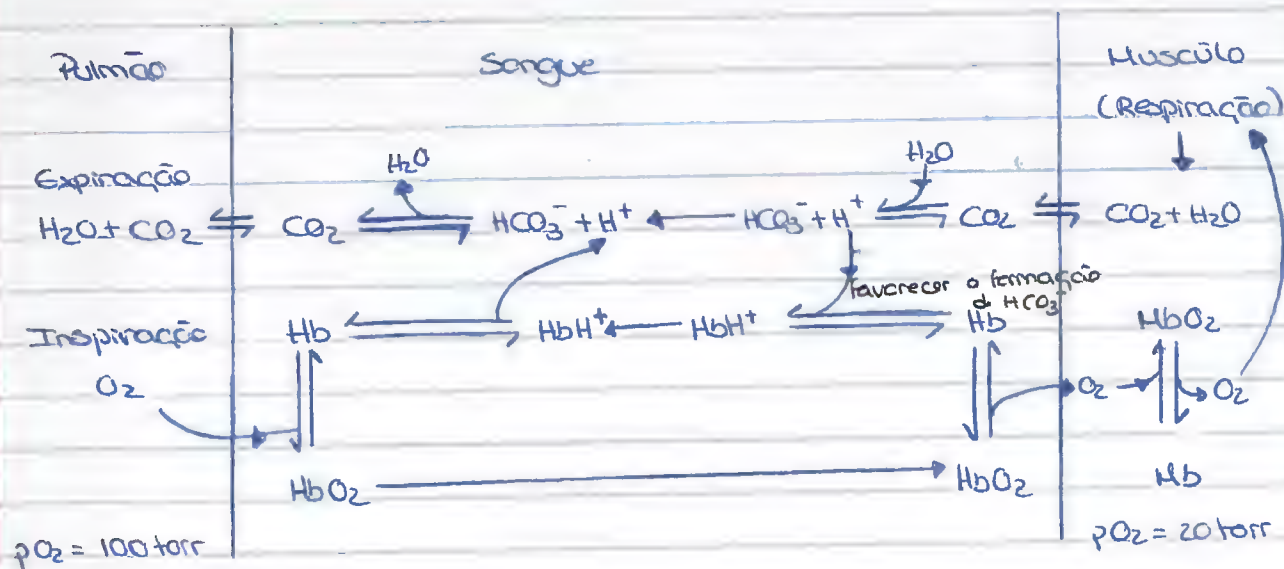 Pulmão Sangue Músculo
(Respiração)
H₂O H₂O
Expiração
H₂O + CO₂ ⇌ CO₂ ⇌ HCO₃⁻ + H⁺ ← HCO₃⁻ + H⁺ ⇌ CO₂ ⇌ CO₂ + H₂O
favorecer a formação
de HCO₃⁻
Inspiração Hb ⇌ HbH⁺ ← HbH⁺ ⇌ Hb MbO₂
O₂ O₂ → O₂
HbO₂ → HbO₂ Mb
pO₂ = 100 torr pO₂ = 20 torr